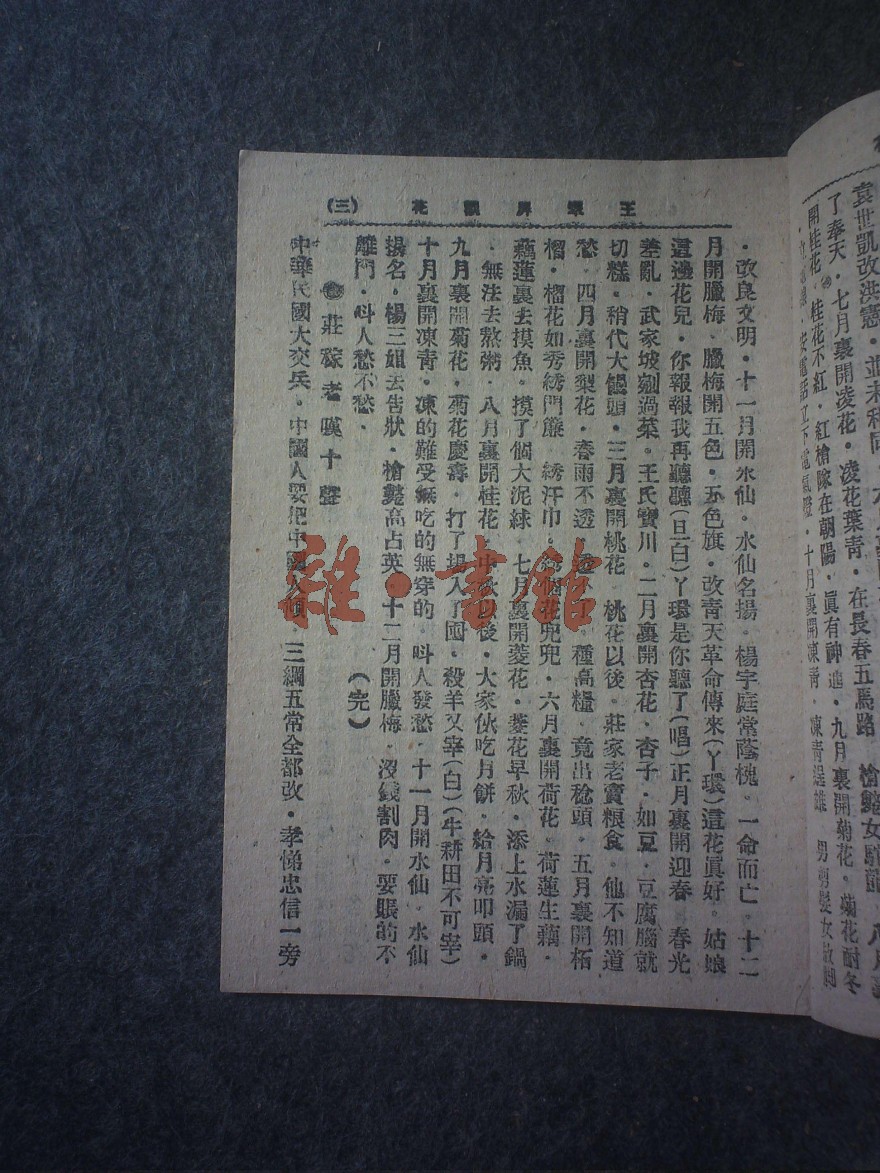 袁世凱改洪憲·並未利同·
了奉天·七月裏開凌花·凌花葉青·在長春五馬路 槍斃女駝龍 八月裏
開桂花·桂花不紅·紅槍隊在朝陽·眞有神通·九月裏開菊花·菊花耐冬
安電話立下電氣燈·十月裏開凍青·凍青
王翠屏觀花 (三)
·改良文明·十一月開水仙·水仙名揚·楊宇庭當蔭槐·一命而亡·十二
月開臘梅·臘梅開五色·五色旗·改青天革命傳來(丫環)這花眞好·姑娘
這邊花兒·你報報我再聽聽(旦白)丫環是你聽了(唱)正月裏開迎春 春光
差亂·武家坡剜過菜·王氏寶川·二月裏開杏花·杏子·如豆·豆腐腦就
切糕·稍代大饅頭·三月裏開桃花 桃花以後·莊家老賣粮食·他不知道
愁·四月裏開梨花·春雨不透 種高糧·竟出稔頭·五月裏開柘
榴·榴花如秀綉門簾·綉汗巾·花兜兜·六月裏開荷花·荷蓮生藕·
藕蓮裏去摸魚·摸了個大泥綠·七月裏開菱花·菱花早秋·添上水漏了鍋
·無法去熬粥·八月裏開桂花·中秋以後·大家伙吃月餅·給月亮叩頭·
九月裏開菊花·菊花慶壽·打了場入了國·殺羊又宰(白)(牛耕田不可宰)
十月裏開凍青·凍的難受無吃的無穿的·呌人發愁·十一月開水仙·水仙
揚名·楊三姐去告狀·槍斃高占英·十二月開臘梅·沒錢割肉·要賬的不
離門·呌人愁不愁· (完)
莊稼老嘆十聲
中華民國大交兵·中國人要把中國人傾·三綱五常全都改·孝悌忠信一旁
雜·書館